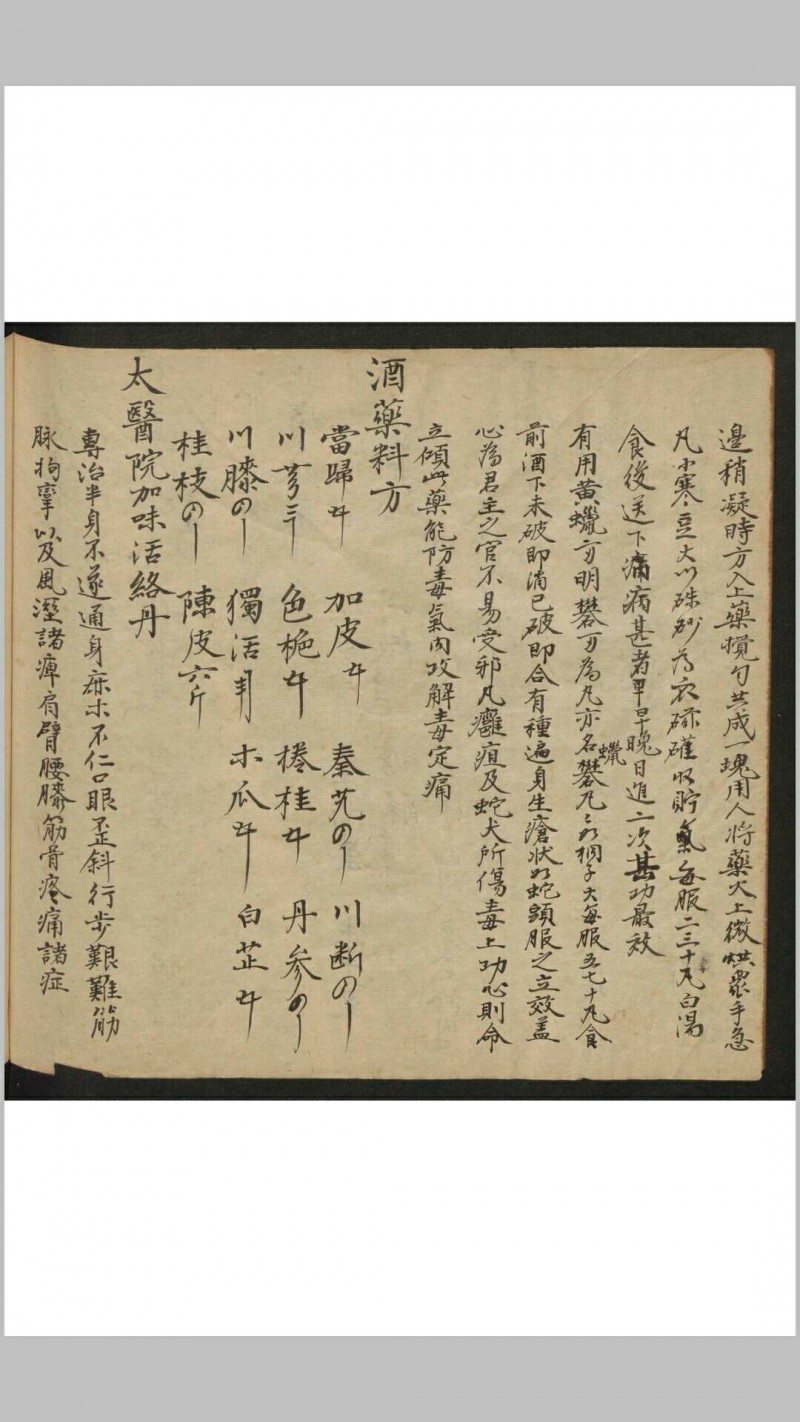 邉稍凝時方入上藥攪勻共成一塊用人將藥火上微烘眾手急
凡小寒豆大以硃砂為衣磁礶收貯每服二三十丸白湯
食後送下痛病甚者早晚日進二次其功最效
有用黃蠟方明礬可為丸亦名蠟礬丸如桐子大每服五七十丸食
前酒下未破即消已破即合有種遍身生瘡狀如蛇頭服之立效盖
心為君主之官不易受邪凡癰疽及蛇犬所傷毒上功心則命
立碩此藥能防毒氣內攻解毒定痛
酒藥料方
當歸 加皮 秦艽 川断
川芎 桂 丹参
川膝 獨活 木瓜 白芷
桂枝 陳皮六斤
太醫院加味活絡丹
專治半身不遂通身麻木不仁口眼歪斜行步艱難筋
脉拘攣以及風溼諸痺肩臂腰膝筋骨疼痛諸症